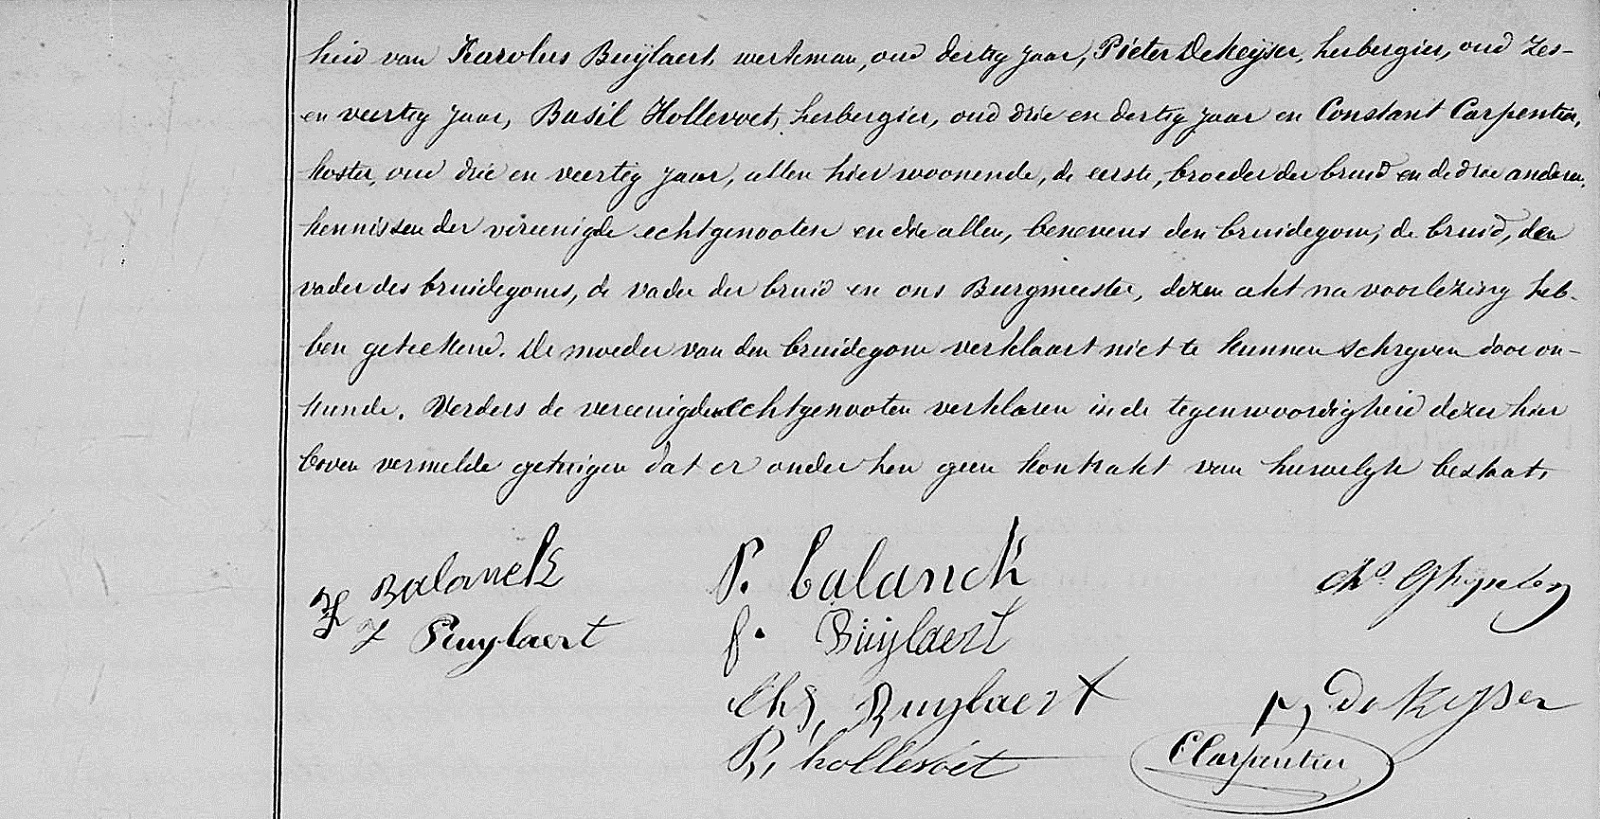 heid van Karolus Buylaert, werkman, oud dertig jaar, Pieter Dekeyser, herbergier, oud zes-
en veertig jaar, Basil Hollevoet, herbergier, oud drie en dertig jaar en Constant Carpentier,
koster, oud drie en veertig jaar, allen hier woonende, de eerste, broeder der bruid en de drie andere,
kennissen der vereenigde echtgenooten en die allen, benevens den bruidegom, de bruid, den
vader des bruidegoms, de vader der bruid en ons Burgmeester, dezen akt na voorlezing heb-
ben geteekend. De moeder van den bruidegom verklaart niet te kunnen schryven door on-
kunde. Verders de vereenigde echtgenooten verklaren in de tegenwoordigheid dezer hier
boven vermelde getuigen dat er onder hen geen kontrakt van huwelyk bestaat.
Balanck P. Calanck Chs
F Buylaert f. Buylaert
Chs, Buylaert De Keyser
B, hollevoet C Carpentier